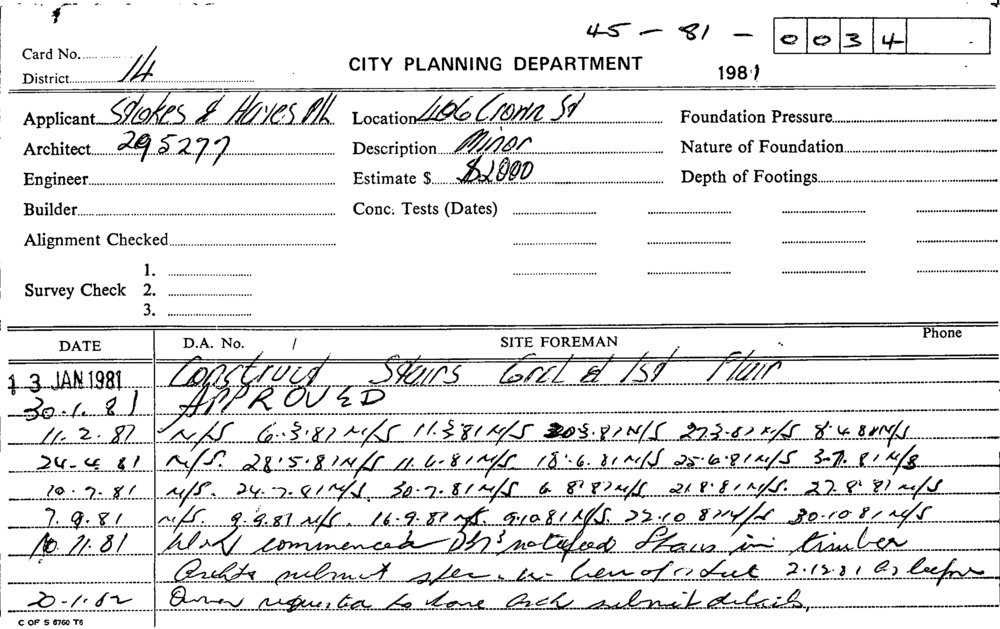 45 - 81 - 0034
Card No.
District 14
CITY PLANNING DEPARTMENT
1981
Applicant Stokes & Hayes P/L
Location 406 Crown St
Foundation Pressure
Architect 295277
Description Minor
Nature of Foundation
Engineer
Estimate $ $2000
Depth of Footings
Builder
Conc. Tests (Dates)
Alignment Checked
1.
Survey Check 2.
3.
DATE
D.A. No. /
SITE FOREMAN
Phone
13 JAN 1981 Construct Stairs Grd & 1st Flair
30.1.81 APPROVED
11.2.81 N/S 6.3.81 N/S 11.3.81 N/S 20.3.81 N/S 27.3.81 N/S 8.4.81 N/S
24-4.81 N/S. 28.5.81 N/S 11.6.81 N/S 18.6.81 N/S 25.6.81 N/S 3.7.81 N/S
10.7.81 N/S. 24.7.81 N/S. 30.7.81 N/S 6.8.81 N/S 21.8.81 N/S. 27.8.81 N/S
7.9.81 N/S. 9.9.81 N/S. 16.9.81 N/S. 9.10.81 N/S. 22.10.81 N/S 30.10.81 N/S
10.11.81 Work commenced Stairs in timber
submit 2.12.81 as before
20-1.82 Owner requested to have Arch submit details.
C OF S 6760 T6